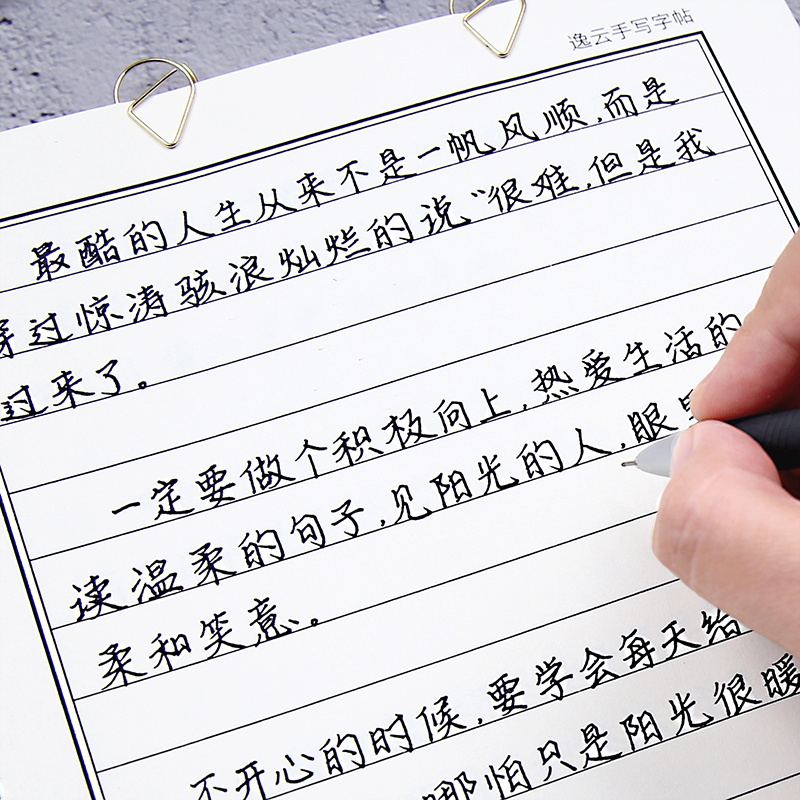 逸云手写字帖
最酷的人生从来不是一帆风顺,而是
穿过惊涛骇浪灿烂的说“很难,但是我
过来了。
一定要做个积极向上,热爱生活的
读温柔的句子,见阳光的人,眼
柔和笑意。
不开心的时候,要学会每天给
哪怕只是阳光很暖